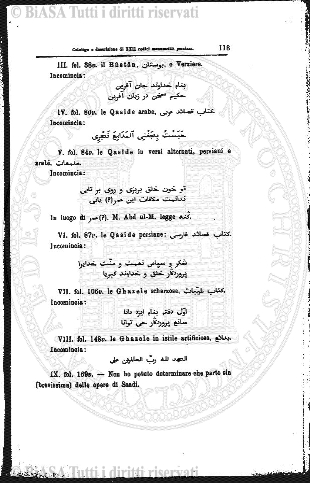 © BiASA Tutti i diritti riservati
Catalogo e descrizione di XXII codici manoscritti persiani. 113
III. fol. 38v. il Bûstân, بوستان, e Versiera.
Incomincia:
بنام خداوند جان آفرین
حکیم سخن در زبان آفرین
IV. fol. 80v. le Qasîde arabe, کتاب قصائد عربی.
Incomincia:
V. fol. 84v. le Qasîde in versi alternati, persiani e
arabi,
Incomincia:
تو خون خلق بریزی و روی بر تابی
In luogo di عمر(?). M. Abd ul-M. legge گنه.
VI. fol. 87r. le Qasîde persiane; کتاب قصائد فارسی.
Incomincia:
شکر و سپاس نعمت و منّت خدایرا
پروردگار خلق و خداوند کبریا
VII. fol. 106v. le Ghazele scherzose, کتاب طیّبات.
Incomincia:
اوّل دفتر بنام ایزد دانا
صانع پروردگار حی توانا
VIII. fol. 148v. le Ghazele in istile artificioso, بدائع.
Incomincia:
الحمد لله ربّ العالمین علی
IX. fol. 169v. — Non ho potuto determinare che parte sia
(brevissima) delle opere di Saadi.
© BiASA Tutti i diritti riservati